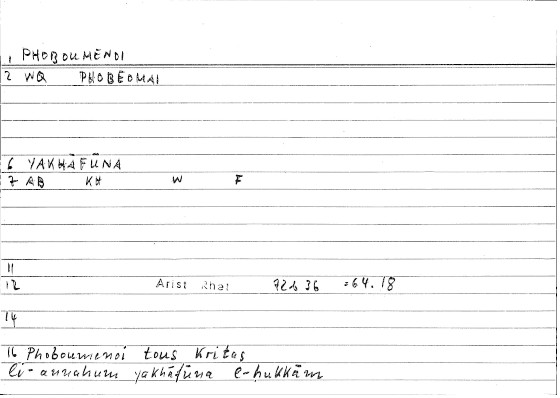 1 PHOBOUMENOI
2 WQ PHOBEOMAI
6 YAKHĀFŪNA
7 AB KH W F
11
12 Arist Rhet 72b36 =64.18
14
16 Phoboumenoi tous Kritas
li-annahum yakhāfūna l-ḥukkām